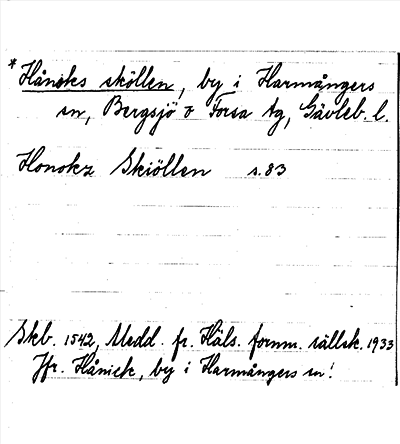 * Hånicks sköllen, by i Harmångers
sn, Bergsjö o Forsa tg, Gävleb. l.
Honokz Skiöllen s. 83
Skb. 1542, Medd. fr. Häls. fornm. sällsk. 1933
Jfr. Hånick, by i Harmångers sn!